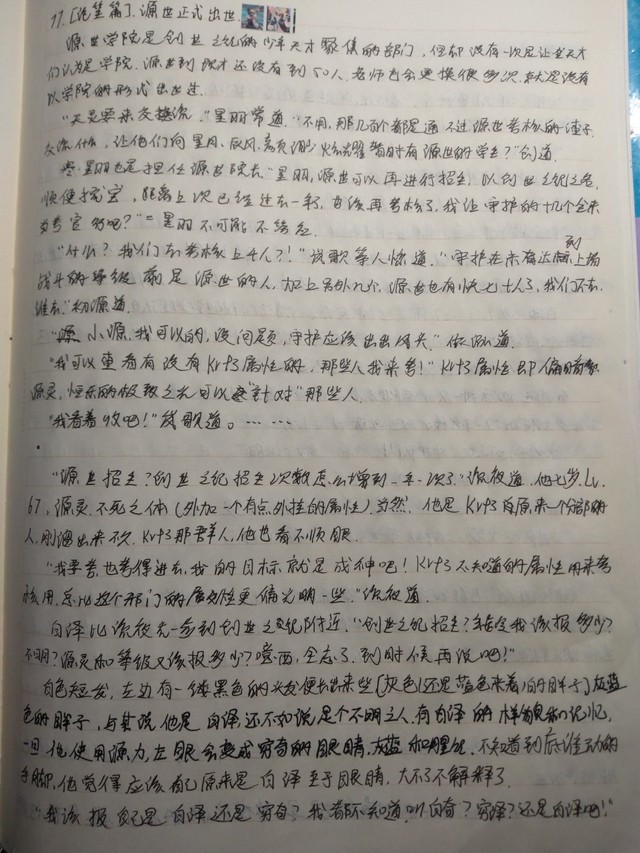 77.[流笙篇].源世正式出世
源世学院是创世之纪的少年天才聚集的部门，但却没有一次是让天才
们认为是学院.源世到现才还没有到50人.老师也会更换很多次.就是没有
以学院的形式出世过.
"又是要来交流."星丽常道."不用,那几百个都是通不过源世考核的渣子.
交流什么，让他们向星月、辰风、
"创道.
星丽也是担任源世院长."星丽,源世可以再进行招生.以创世之纪之名,
顺便找宝，距离上次已经过去一年，应该再考核了.我让守护的十几个全来
当考官
星丽不可能不答应.
"什么？我们去考核上千人？!"战歌等人惊道."守护在未有达到上场
战斗的等级前是源世的人,加上另外几个,源世也有快七十人了,我们不去,
谁去."初源道.
小源.我可以的,没问题,守护应该出出风头."
"我可以查看有没有Kr+3属性的，那些人我来考!"Kr+3属性即偏暗
源灵，恒乐的极致之光可以"针对"那些人.
"我看着收吧!"战歌道。……
"源世招生？创世之纪招生次数怎么增到一年一次了."流夜道.他七岁.Lv.
67,源灵.不死之体(外加一个有点外挂的属性).当然,他是Kr+3自原来一个分部的
人,刚溜出来不久.Kr+3那群人,他也看不顺眼.
"我要考也考得进去,我的目标就是成神吧!Kr+3不知道的属性用来考
核用.总比这个邪门的属性更偏光明一些."流夜道.
白泽比流夜先一步到创世之纪附近."创世之纪招生？年龄我该报多少？
不明？源灵和等级又该报多少？嘻,西,全忘了.到时候再说吧!"
白色短发,左边有一缕黑色的头发便长出来些[灰色(还是蓝色来着)的眸子]灰蓝
色的眸子，与其说他是白泽,还不如说,是个不明之人.有白泽的样貌和记忆,
一旦他使用源力,左眼会变成穷奇的眼睛.灰蓝和黑化.不知道到底谁动的
手脚,他觉得应该自己原来是白泽至于眼睛，大不了不解释了.
"我该报自己是白泽还是穷奇？我都不知道.叫白奇？穷泽？还是白泽吧!"